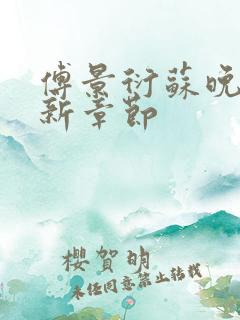 傅景衍蘇晚
新章節
櫻賀明
未經同意禁止轉載